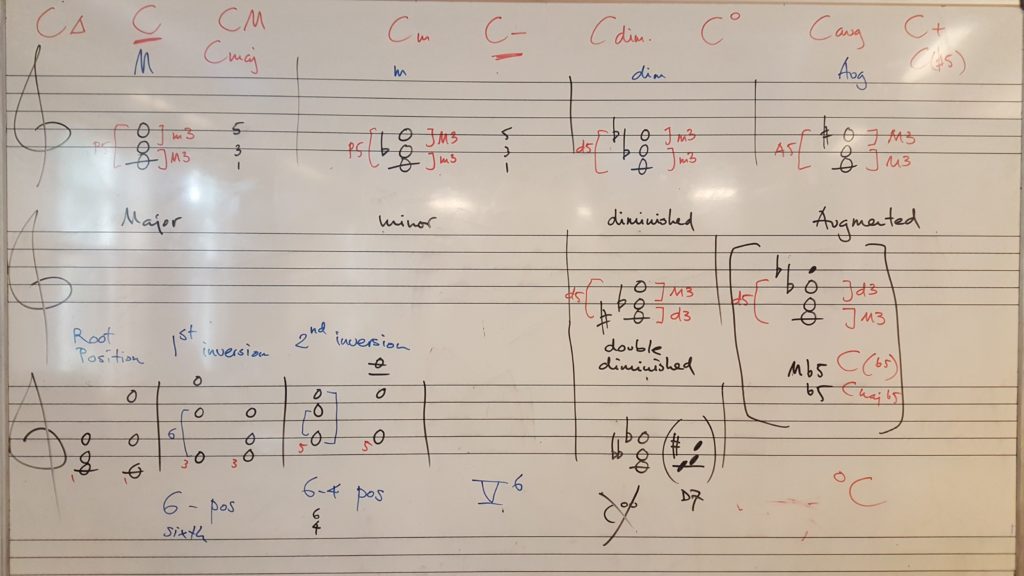 C△ C CM Cm C– Cdim. C° Caug C+
Cmaj C(#5)
M m dim Aug
P5 m3 5 P5 M3 5 d5 m3 A5 M3
M3 3 m3 3 m3 M3
1 1
Major minor diminished Augmented
d5 M3 d5 d3
d3 M3
Root Position 1st inversion 2nd inversion
double
diminished
Mb5 C(b5)
b5 Cmajb5
6
1 1 3 3 5 5
6 - pos 6-4 pos V6 C°° D7 °C
sixth 6
4